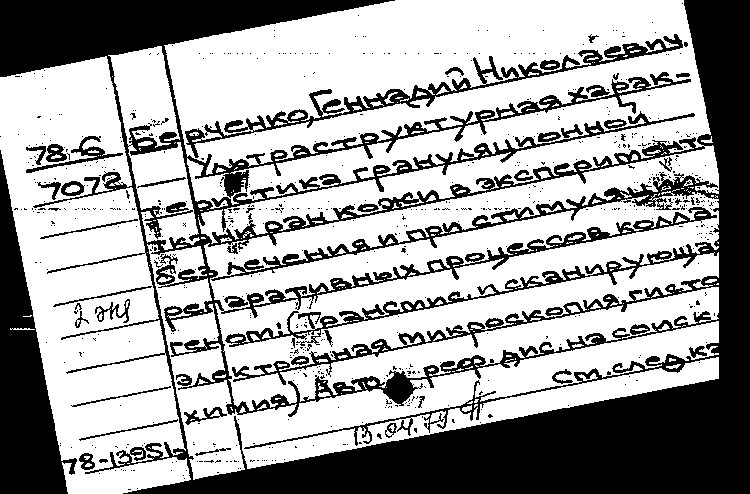 Берченко, Геннадий Николаевич.
78-6 Ультраструктурная харак=
7072 теристика грануляционной
ткани ран кожи в эксперименте
без лечения и при стимуляции
репаративных процессов колла-
2 экз геном: (Трансмис. и сканирующая
электронная микроскопия, гисто
химия). Авто реф. дис. на соиск.
См. след. ка
78-13951 13.04.79.